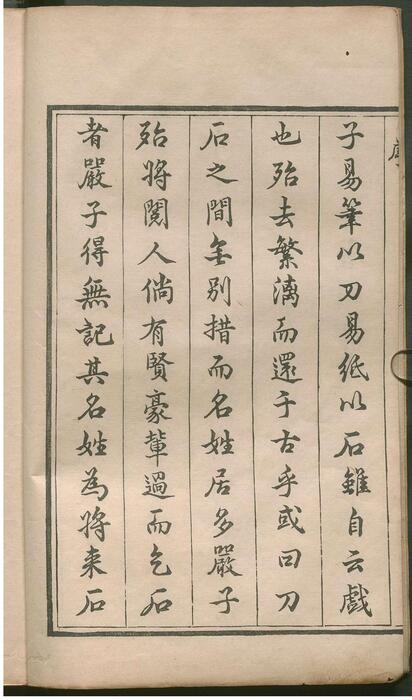 子易筆以刀易紙以石雖自云戲
也殆去繁漓而還于古乎或曰刀
石之間無別措而名姓居多嚴子
殆將閱人倘有賢豪輩過而乞石
者嚴子得無記其名姓為將来石